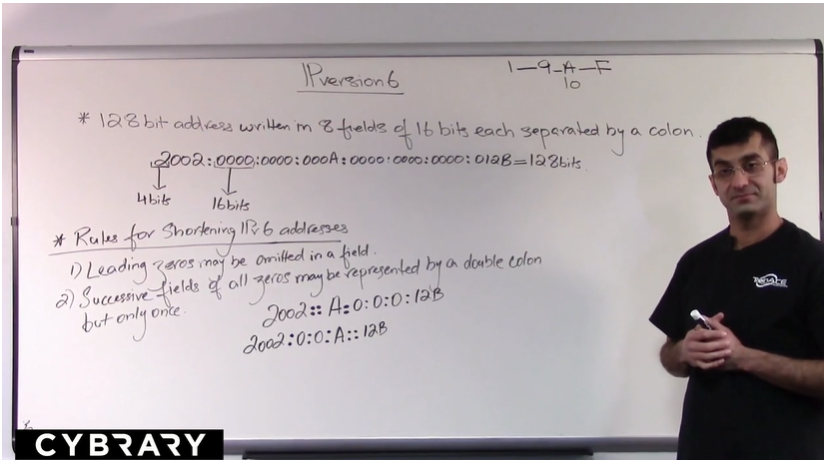 IPversion6
1—9—A—F
10
* 128bit address written in 8 fields of 16 bits each separated by a colon.
2002:0000:0000:000A:0000:0000:0000:012B=128bits.
4bits
16bits
* Rules for Shortening IPv6 addresses
1) Leading zeros may be omitted in a field.
2) Successive fields of all zeros may be represented by a double colon
but only once.
2002::A:0:0:0:12B
2002:0:0:A::12B
CYBRARY